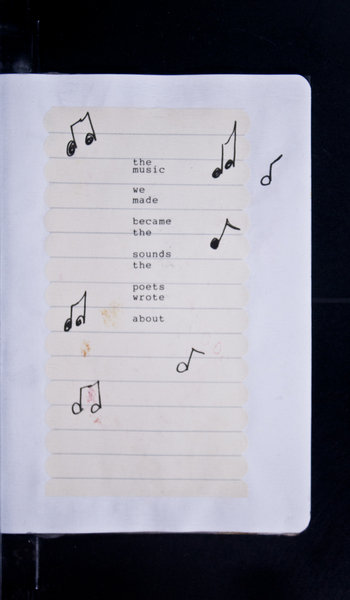 the
music
we
made
became
the
sounds
the
poets
wrote
about